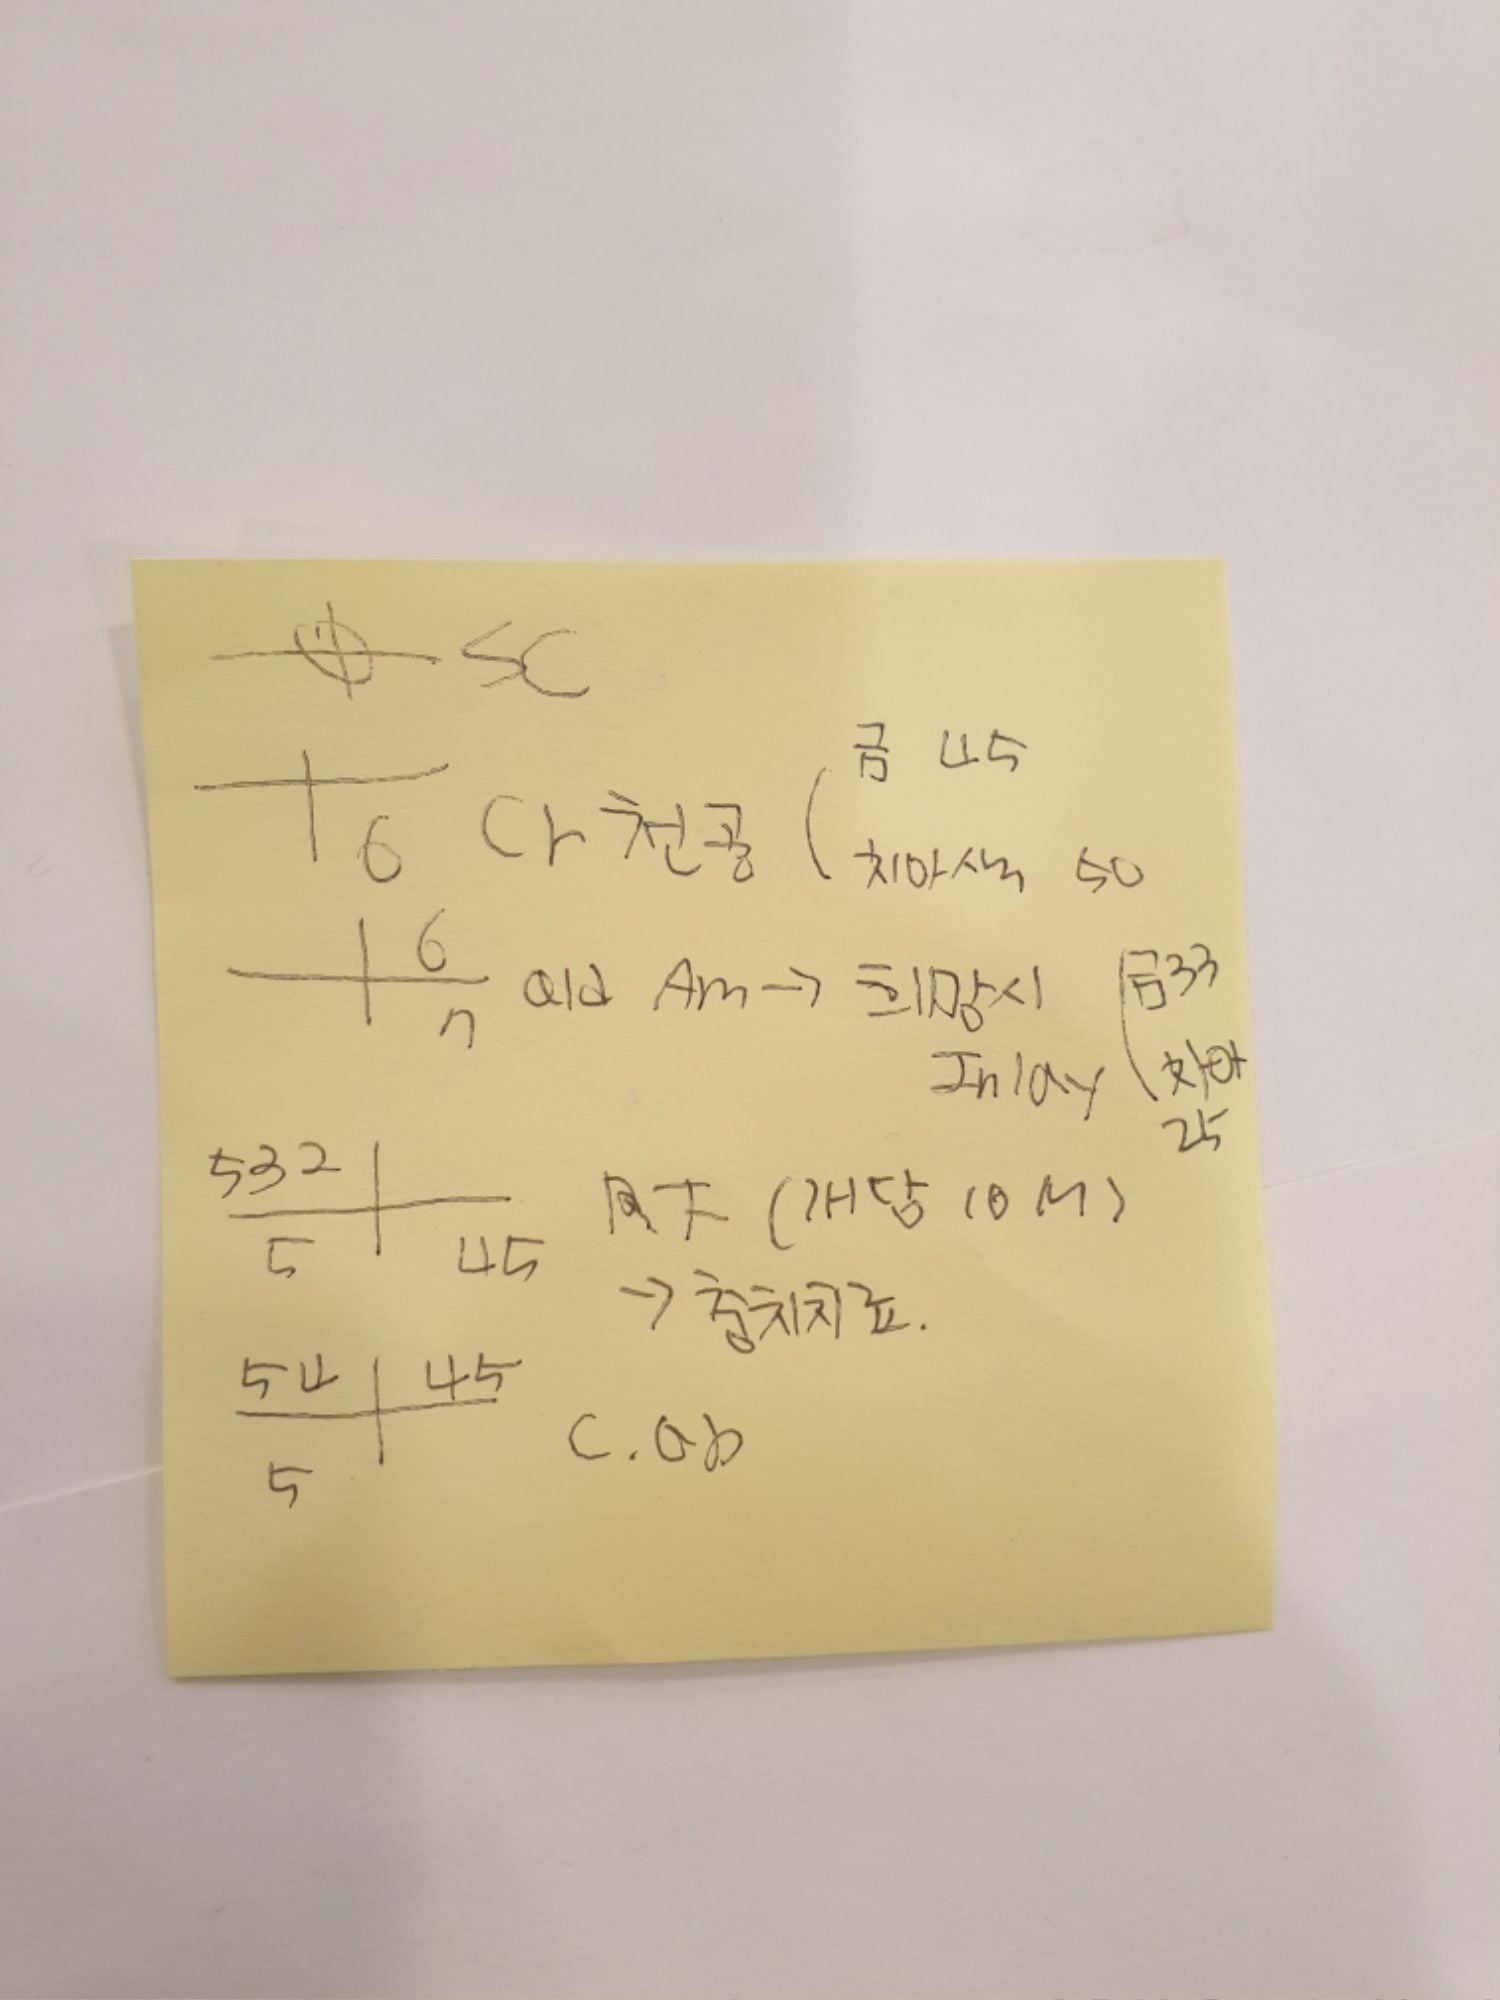 SC
금 45
6 Cr 천공
치아색 50
6
7 old Am → 희망시 금33
Inlay 치아
25
532
5 45 RF (개당 10M)
→ 충치치료.
54 45
5 C.ab